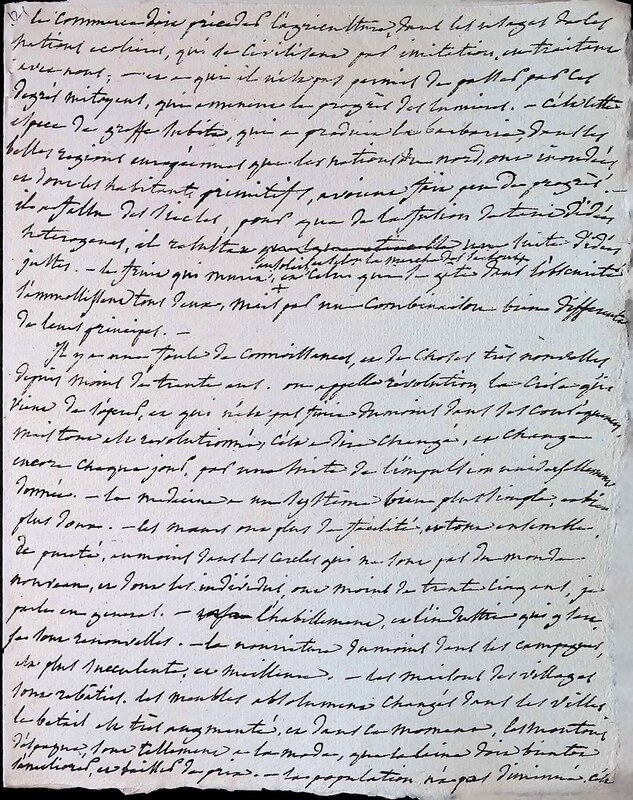 121
le Commerce doit précéder l'agriculture, dans les usages de ces
nations ecolieres, qui se civilisent par imitation, en traitant
avec nous, – et a qui il n'est pas permis de passer par les
degrés mitoyens, qui amenent le progrès des lumieres. – c'est cette
espece de greffe subite, qui a produit la barbarie, dans les
belles regions européennes que les nations du nord, ont inondées
et dont les habitants primitifs, avoient fait peu de progrès. –
il a fallu des siecles, pour que de la fusion de tant d'idées
heterogenes, il resultat une suite d'idées
justes. – le fruit qui murit au soleil et celui qui se gâte dans l'obscurité
s'amollissent tous deux, mais par une combinaison bien differente
de leurs principes. –
Il y a une foule de connoissances, et de choses très nouvelles
depuis moins de trente ans. on appelle révolution, la Crise qui
vient de s'operer, et qui n'est pas finie du moins dans ses consequences,
mais tout est revolutionné, c'est a dire changé, et change
encore chaque jour, par une suite de l'impulsion universellement
donnée. – la medecine a un système bien plus simple, et bien
plus doux. – les mœurs ont plus de facilité, et tout ensemble,
de pureté, au moins dans les cercles qui ne sont pas du monde
nouveau, et dont les individus, ont moins de trente cinq ans, je
parle en general. – l'habillement, et l'industrie qui y
se sont renouvellés. – la nourriture du moins dans les campagnes,
est plus succulente, et meilleure. – les maisons des villages
sont rebaties. les meubles absolument changés dans les villes
le betail est très augmenté, et dans ce moment, les moutons
d'espagne, sont tellement a la mode, que la laine doit bientot
s'améliorer, et baisser de prix. – la population, n'a pas diminué, c'est